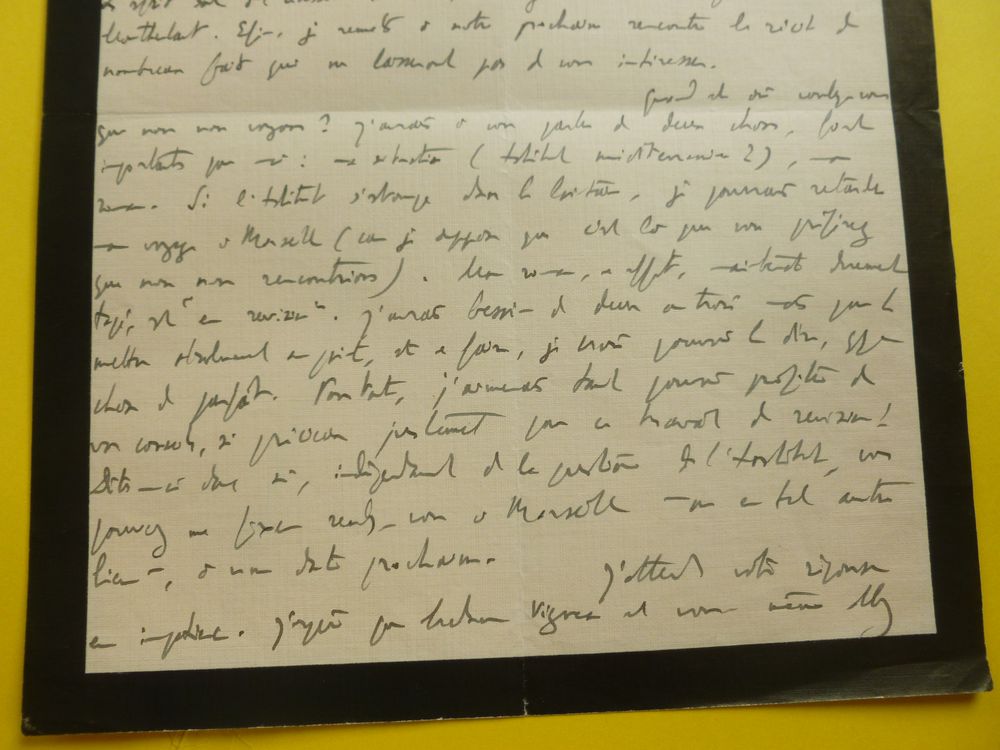 Montherlant. Enfin, je remets à notre prochaine rencontre le récit de
nombreux faits qui ne laisseront pas de vous intéresser.
Quand et où voulez-vous
que nous nous voyons ? J'aurais à vous parler de deux choses, fort
importantes pour moi : ma situation (Institut méditerranéen ?), mon
roman. Si l'Institut s'arrange dans la huitaine, je pourrais retarder
mon voyage à Marseille (car je suppose que c'est là que vous préférez
que nous nous rencontrions). Mon roman, en effet, maintenant dûment
tapé, est en revision. J'aurais besoin de deux ou trois mois pour le
mettre absolument au point, et en faire, je crois pouvoir le dire, qque
chose de parfait. Pourtant, j'aimerais tant pouvoir profiter de
vos conseils, si précieux justement pour ce travail de revision !
Dites-moi donc si, indépendamment de la question de l'Institut, vous
pouvez me fixer rendez-vous à Marseille — ou en tel autre
lieu —, à une date prochaine.
J'attends votre réponse
en impatience. J'espère que Madame et vous même